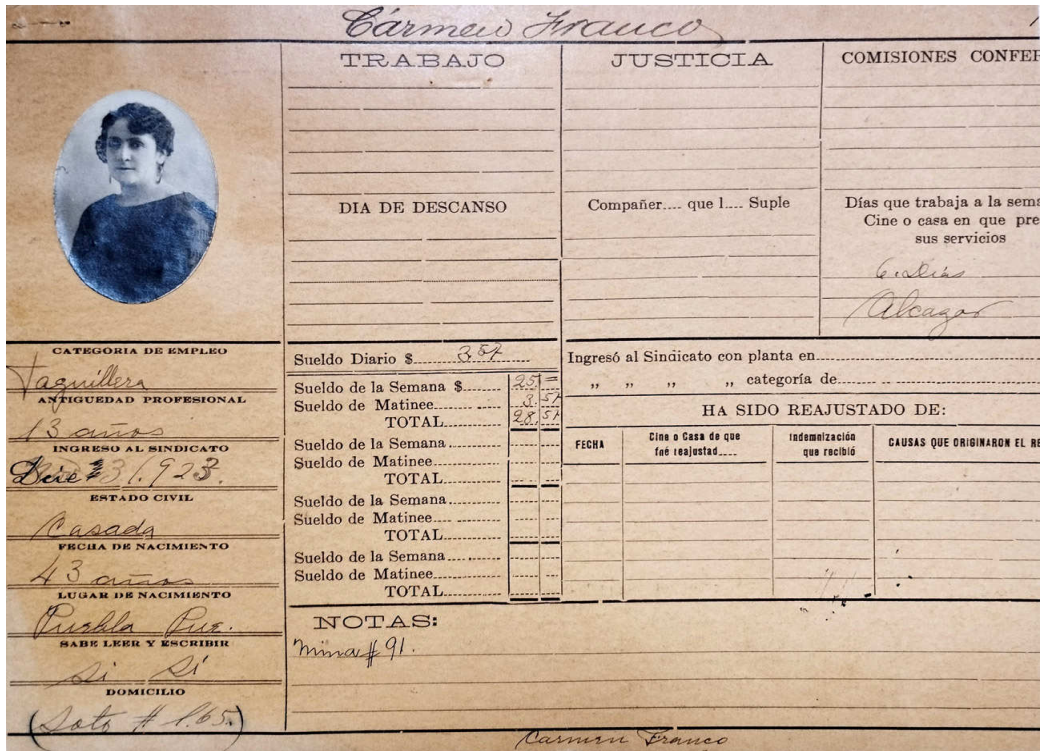 Cármen Franco
TRABAJO
JUSTICIA
COMISIONES CONFER
DIA DE DESCANSO
Compañer.... que l.... Suple
Días que trabaja a la sema
Cine o casa en que pre
sus servicios
6. Dias
Alcazar
CATEGORIA DE EMPLEO
Taquillera
ANTIGUEDAD PROFESIONAL
13 años
INGRESO AL SINDICATO
1.923.
ESTADO CIVIL
Casada
FECHA DE NACIMIENTO
43 años
LUGAR DE NACIMIENTO
Puebla Pue.
SABE LEER Y ESCRIBIR
Si Sí
DOMICILIO
(Soto # 165.)
Sueldo Diario $ 3.57
Sueldo de la Semana $ 25 =
Sueldo de Matinee 3.57
TOTAL 28.57
Sueldo de la Semana
Sueldo de Matinee
TOTAL
Sueldo de la Semana
Sueldo de Matinee
TOTAL
Sueldo de la Semana
Sueldo de Matinee
TOTAL
Ingresó al Sindicato con planta en
„ „ „ „ categoría de
HA SIDO REAJUSTADO DE:
FECHA
Cine o Casa de que
fué reajustad....
Indemnización
que recibió
CAUSAS QUE ORIGINARON EL RE
NOTAS:
Mina # 91.
Carmen Franco